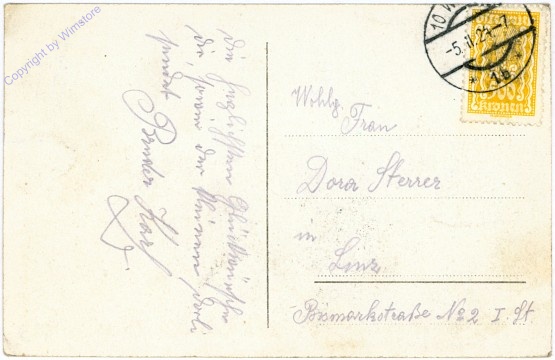 Copyright by Wimstore
Die herzlichsten Glückwünsche
die sowie der
sendet
Bruder Karl
10 W
-5.II.24-7
* 16 *
Kronen
Wohlg.
Frau
Dora Sterrer
in
Linz
Bismarkstraße No 2 I. St.